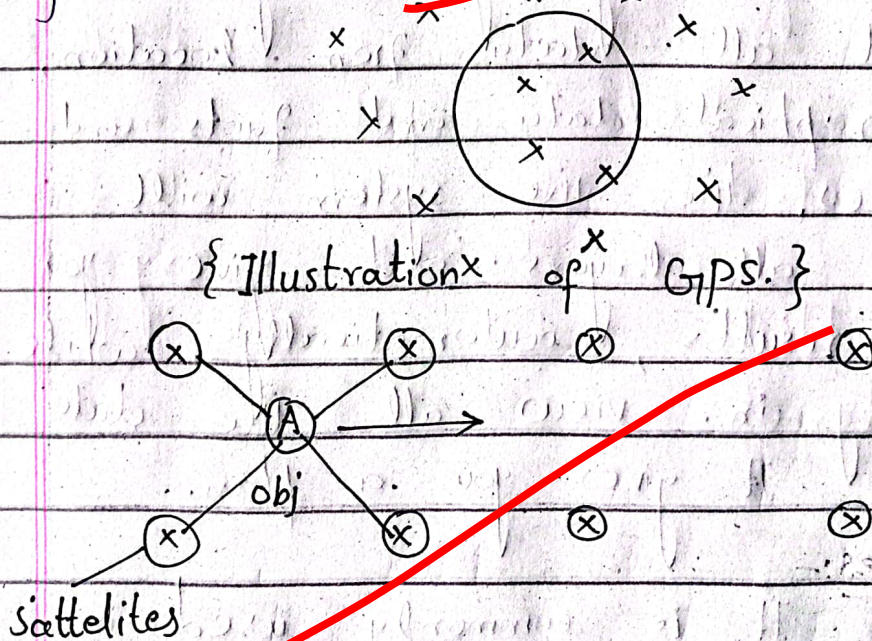 { Illustration of GPS. }
A
obj
sattelites